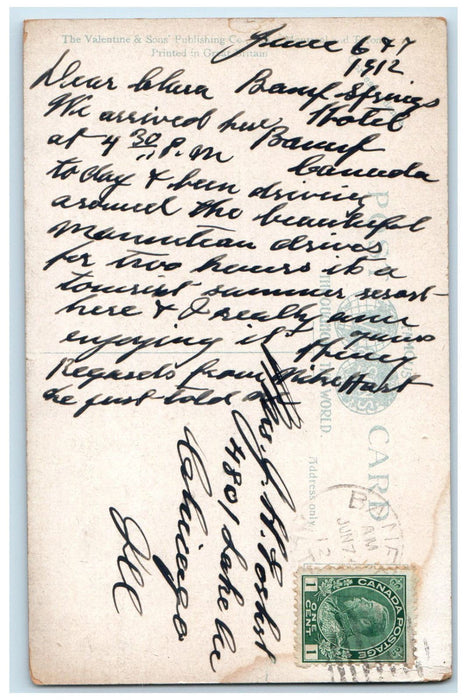 The Valentine & Sons' Publishing Co. Montreal and Toronto
Printed in Great Britain
June 6 & 7
1912
Dear Clara Banff Springs
Hotel
We arrived here Banff
at 4 30 P.M Canada
today & been driving
around the beautiful
mountian drives
for two hours it's a
tourist summer resort
here & I really am
enjoying it yours
Regards from Mike Hart
he just told me
Mrs. J. H.
4801 Lake Ave
Chicago
Ill
POST CARD
THROUGHOUT THE WORLD.
Address only.
BANFF
AM
JUN 7
12
CANADA POSTAGE
1 ONE CENT 1